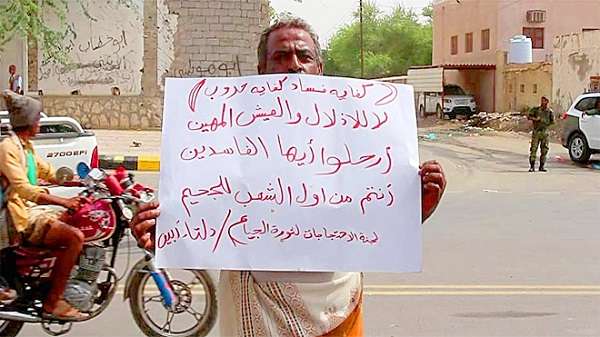 ( كفاية فساد كفاية حروب )
لا للاذلال والعيش المهين
أرحلوا أيها الفاسدين
أنتم من اول الشعب للجحيم
لجنة الاحتجاجات لثورة الجياع / دلتا أبين